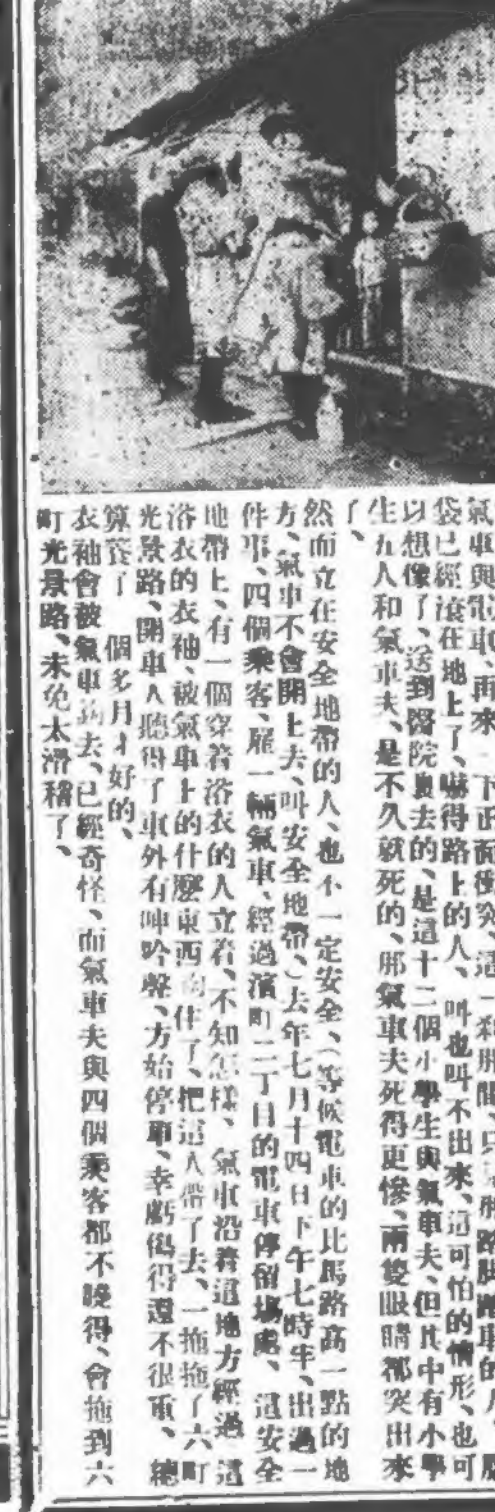 氣車與電車、再來一下正面衝突、這一剎那間、只見
袋已經滾在地上了、嚇得路上的人、叫也叫不出來、這可怕的情形、也可
以想像了、送到醫院裏去的、是這十二個小學生與氣車夫、但其中有小學
生五人和氣車夫、是不久就死的、那氣車夫死得更慘、兩隻眼睛都突出來
了、
然而立在安全地帶的人、也不一定安全、(等候電車的比馬路高一點的地
方、氣車不會開上去、叫安全地帶、)去年七月十四日下午七時半、出過一
件事、四個乘客、雇一輛氣車、經過濱町二丁目的電車停留場處、這安全
地帶上、有一個穿着浴衣的人立着、不知怎樣、氣車沿着這地方經過、這
浴衣的衣袖、被氣車上的什麼東西鈎住了、把這人帶了去、一拖拖了六町
光景路、開車人聽得了車外有呻吟聲、方始停車、幸虧傷得還不很重、總
算養了一個多月才好的、
衣袖會被氣車鈎去、已經奇怪、而氣車夫與四個乘客都不曉得、會拖到六
町光景路、未免太滑稽了、